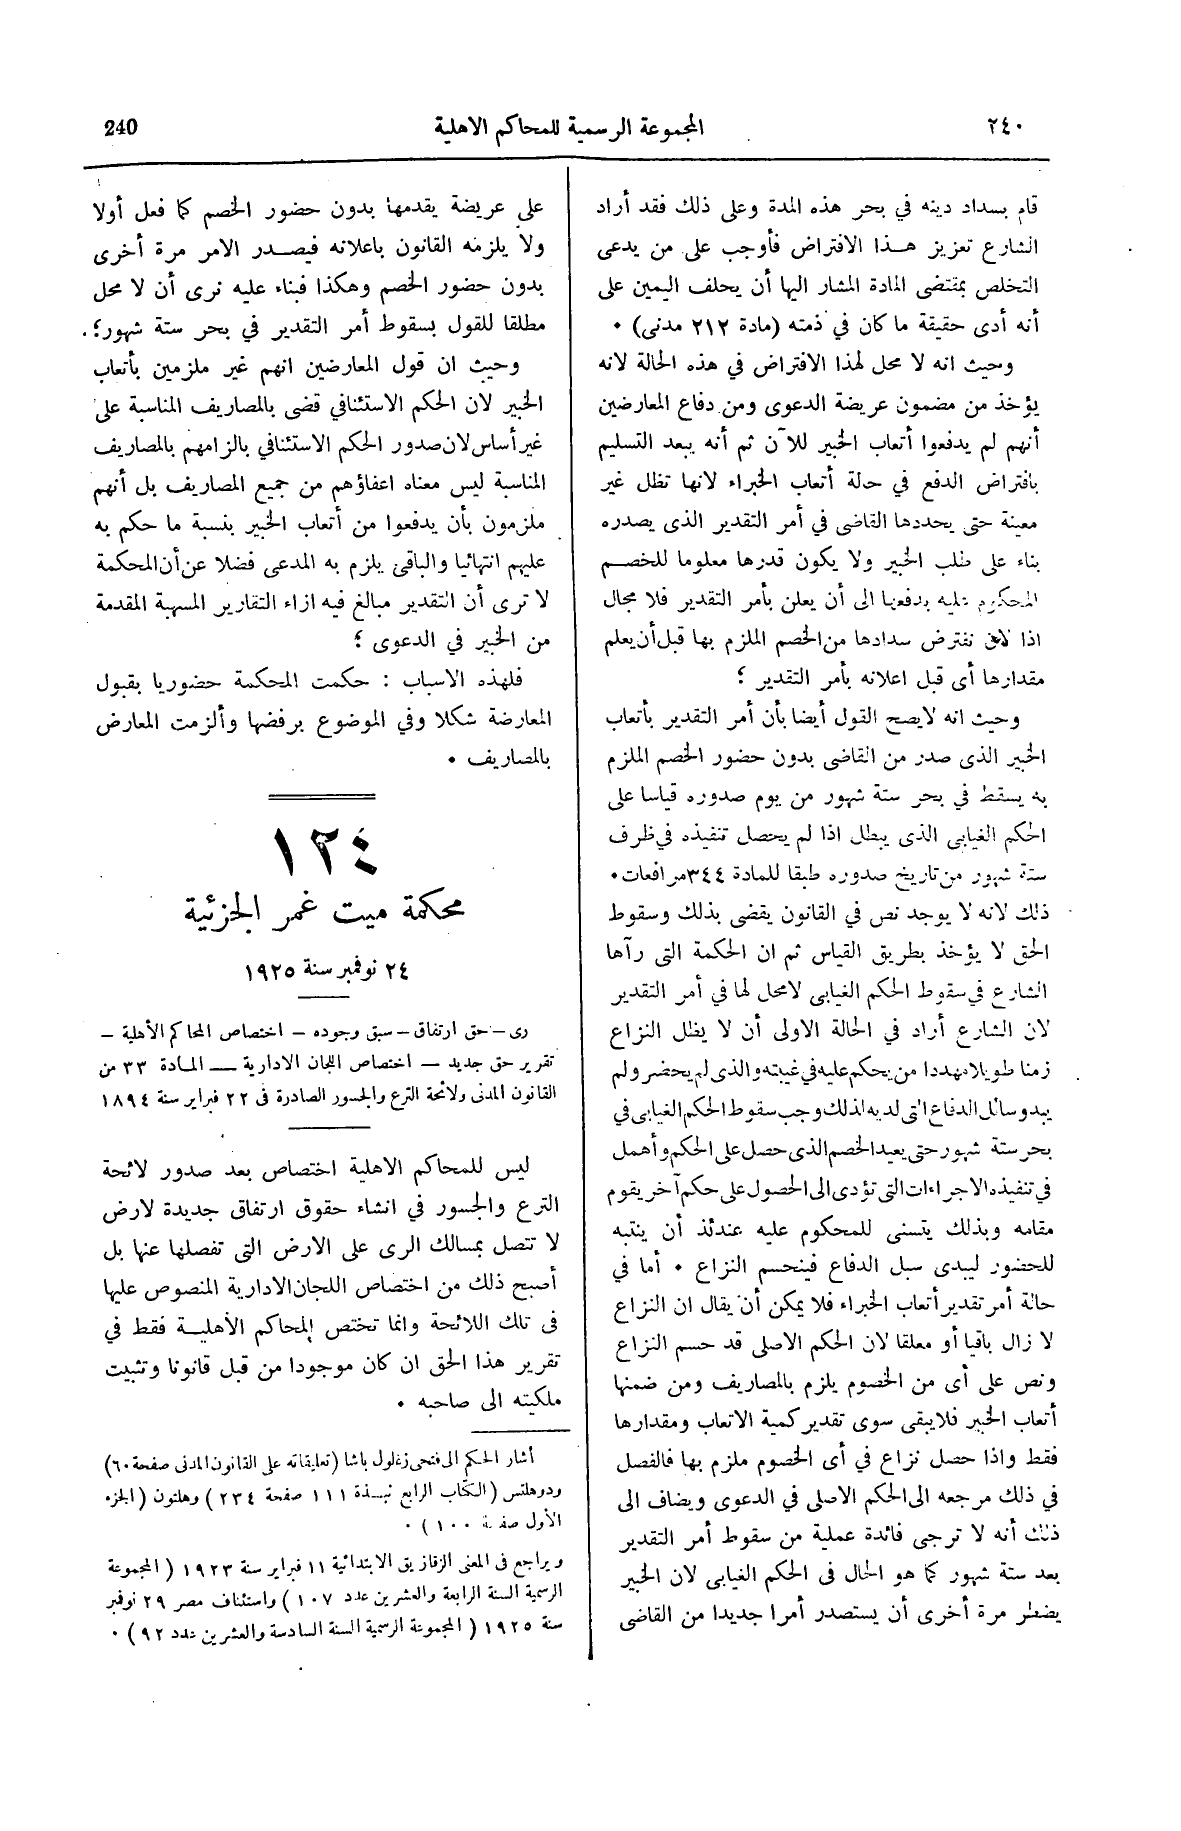 ٢٤٠
المجموعة الرسمية للمحاكم الاهلية
240
قام بسداد دينه في بحر هذه المدة وعلى ذلك فقد أراد
الشارع تعزيز هذا الافتراض فأوجب على من يدعى
التخلص بمقتضى المادة المشار اليها أن يحلف اليمين على
أنه أدى حقيقة ما كان في ذمته (مادة ٢١٢ مدنى) .
وحيث انه لا محل لهذا الافتراض في هذه الحالة لانه
يؤخذ من مضمون عريضة الدعوى ومن دفاع المعارضين
أنهم لم يدفعوا أتعاب الخبير للآن ثم أنه يبعد التسليم
بافتراض الدفع في حالة أتعاب الخبراء لانها تظل غير
معينة حتى يحددها القاضى في أمر التقدير الذى يصدره
بناء على طلب الخبير ولا يكون قدرها معلوما للخصم
المحكوم عليه بدفعها الى أن يعلن بأمر التقدير فلا مجال
اذا لان نفترض سدادها من الخصم الملزم بها قبل أن يعلم
مقدارها أى قبل اعلانه بأمر التقدير ؛
وحيث انه لا يصح القول أيضا بأن أمر التقدير بأتعاب
الخبير الذى صدر من القاضى بدون حضور الخصم الملزم
به يسقط في بحر ستة شهور من يوم صدوره قياسا على
الحكم الغيابى الذى يبطل اذا لم يحصل تنفيذه في ظرف
ستة شهور من تاريخ صدوره طبقا للمادة ٣٤٤ مرافعات .
ذلك لانه لا يوجد نص في القانون يقضى بذلك وسقوط
الحق لا يؤخذ بطريق القياس ثم ان الحكمة التى رآها
الشارع في سقوط الحكم الغيابى لا محل لها في أمر التقدير
لان الشارع أراد في الحالة الاولى أن لا يظل النزاع
زمنا طويلا مهددا من يحكم عليه في غيبته والذى لم يحضر ولم
يبد وسائل الدفاع التى لديه لذلك وجب سقوط الحكم الغيابى في
بحر ستة شهور حتى يعيد الخصم الذى حصل على الحكم وأهمل
في تنفيذه الاجراءات التى تؤدى الى الحصول على حكم آخر يقوم
مقامه وبذلك يتسنى للمحكوم عليه عندئذ أن ينتبه
للحضور ليبدى سبل الدفاع فينحسم النزاع . أما في
حالة أمر تقدير أتعاب الخبراء فلا يمكن أن يقال ان النزاع
لا زال باقيا أو معلقا لان الحكم الاصلى قد حسم النزاع
ونص على أى من الخصوم يلزم بالمصاريف ومن ضمنها
أتعاب الخبير فلا يبقى سوى تقدير كمية الاتعاب ومقدارها
فقط واذا حصل نزاع في أى الخصوم ملزم بها فالفصل
في ذلك مرجعه الى الحكم الاصلى في الدعوى ويضاف الى
ذلك أنه لا ترجى فائدة عملية من سقوط أمر التقدير
بعد ستة شهور كما هو الحال فى الحكم الغيابى لان الخبير
يضطر مرة أخرى أن يستصدر أمرا جديدا من القاضى
على عريضة يقدمها بدون حضور الخصم كما فعل أولا
ولا يلزمه القانون باعلانه فيصدر الامر مرة أخرى
بدون حضور الخصم وهكذا فبناء عليه نرى أن لا محل
مطلقا للقول بسقوط أمر التقدير في بحر ستة شهور ؛
وحيث ان قول المعارضين انهم غير ملزمين بأتعاب
الخبير لان الحكم الاستئنافي قضى بالمصاريف المناسبة على
غير أساس لان صدور الحكم الاستئنافي بالزامهم بالمصاريف
المناسبة ليس معناه اعفاؤهم من جميع المصاريف بل أنهم
ملزمون بأن يدفعوا من أتعاب الخبير بنسبة ما حكم به
عليهم انتهائيا والباقى يلزم به المدعى فضلا عن أن المحكمة
لا ترى أن التقدير مبالغ فيه ازاء التقارير المسهبة المقدمة
من الخبير في الدعوى ؛
فلهذه الاسباب : حكمت المحكمة حضوريا بقبول
المعارضة شكلا وفي الموضوع برفضها وألزمت المعارض
بالمصاريف .
١٢٤
محكمة ميت غمر الجزئية
٢٤ نوفمبر سنة ١٩٢٥
رى – حق ارتفاق – سبق وجوده – اختصاص المحاكم الأهلية –
تقرير حق جديد – اختصاص اللجان الادارية – المادة ٣٣ من
القانون المدنى ولائحة الترع والجسور الصادرة فى ٢٢ فبراير سنة ١٨٩٤
ليس للمحاكم الاهلية اختصاص بعد صدور لائحة
الترع والجسور في انشاء حقوق ارتفاق جديدة لارض
لا تتصل بمسالك الرى على الارض التى تفصلها عنها بل
أصبح ذلك من اختصاص اللجان الادارية المنصوص عليها
فى تلك اللائحة وانما تختص المحاكم الأهلية فقط في
تقرير هذا الحق ان كان موجودا من قبل قانونا وتثبيت
ملكيته الى صاحبه .
أشار الحكم الى فتحى زغلول باشا (تعليقاته على القانون المدنى صفحة ٦٠)
ودوهلتس (الكتاب الرابع نبذة ١١١ صفحة ٢٣٤) وهلتون (الجزء
الأول صفحة ١٠٠) .
ويراجع فى المعنى الزقازيق الابتدائية ١١ فبراير سنة ١٩٢٣ (المجموعة
الرسمية السنة الرابعة والعشرين عدد ١٠٧) واستئناف مصر ٢٩ نوفمبر
سنة ١٩٢٥ (المجموعة الرسمية السنة السادسة والعشرين عدد ٩٢) .